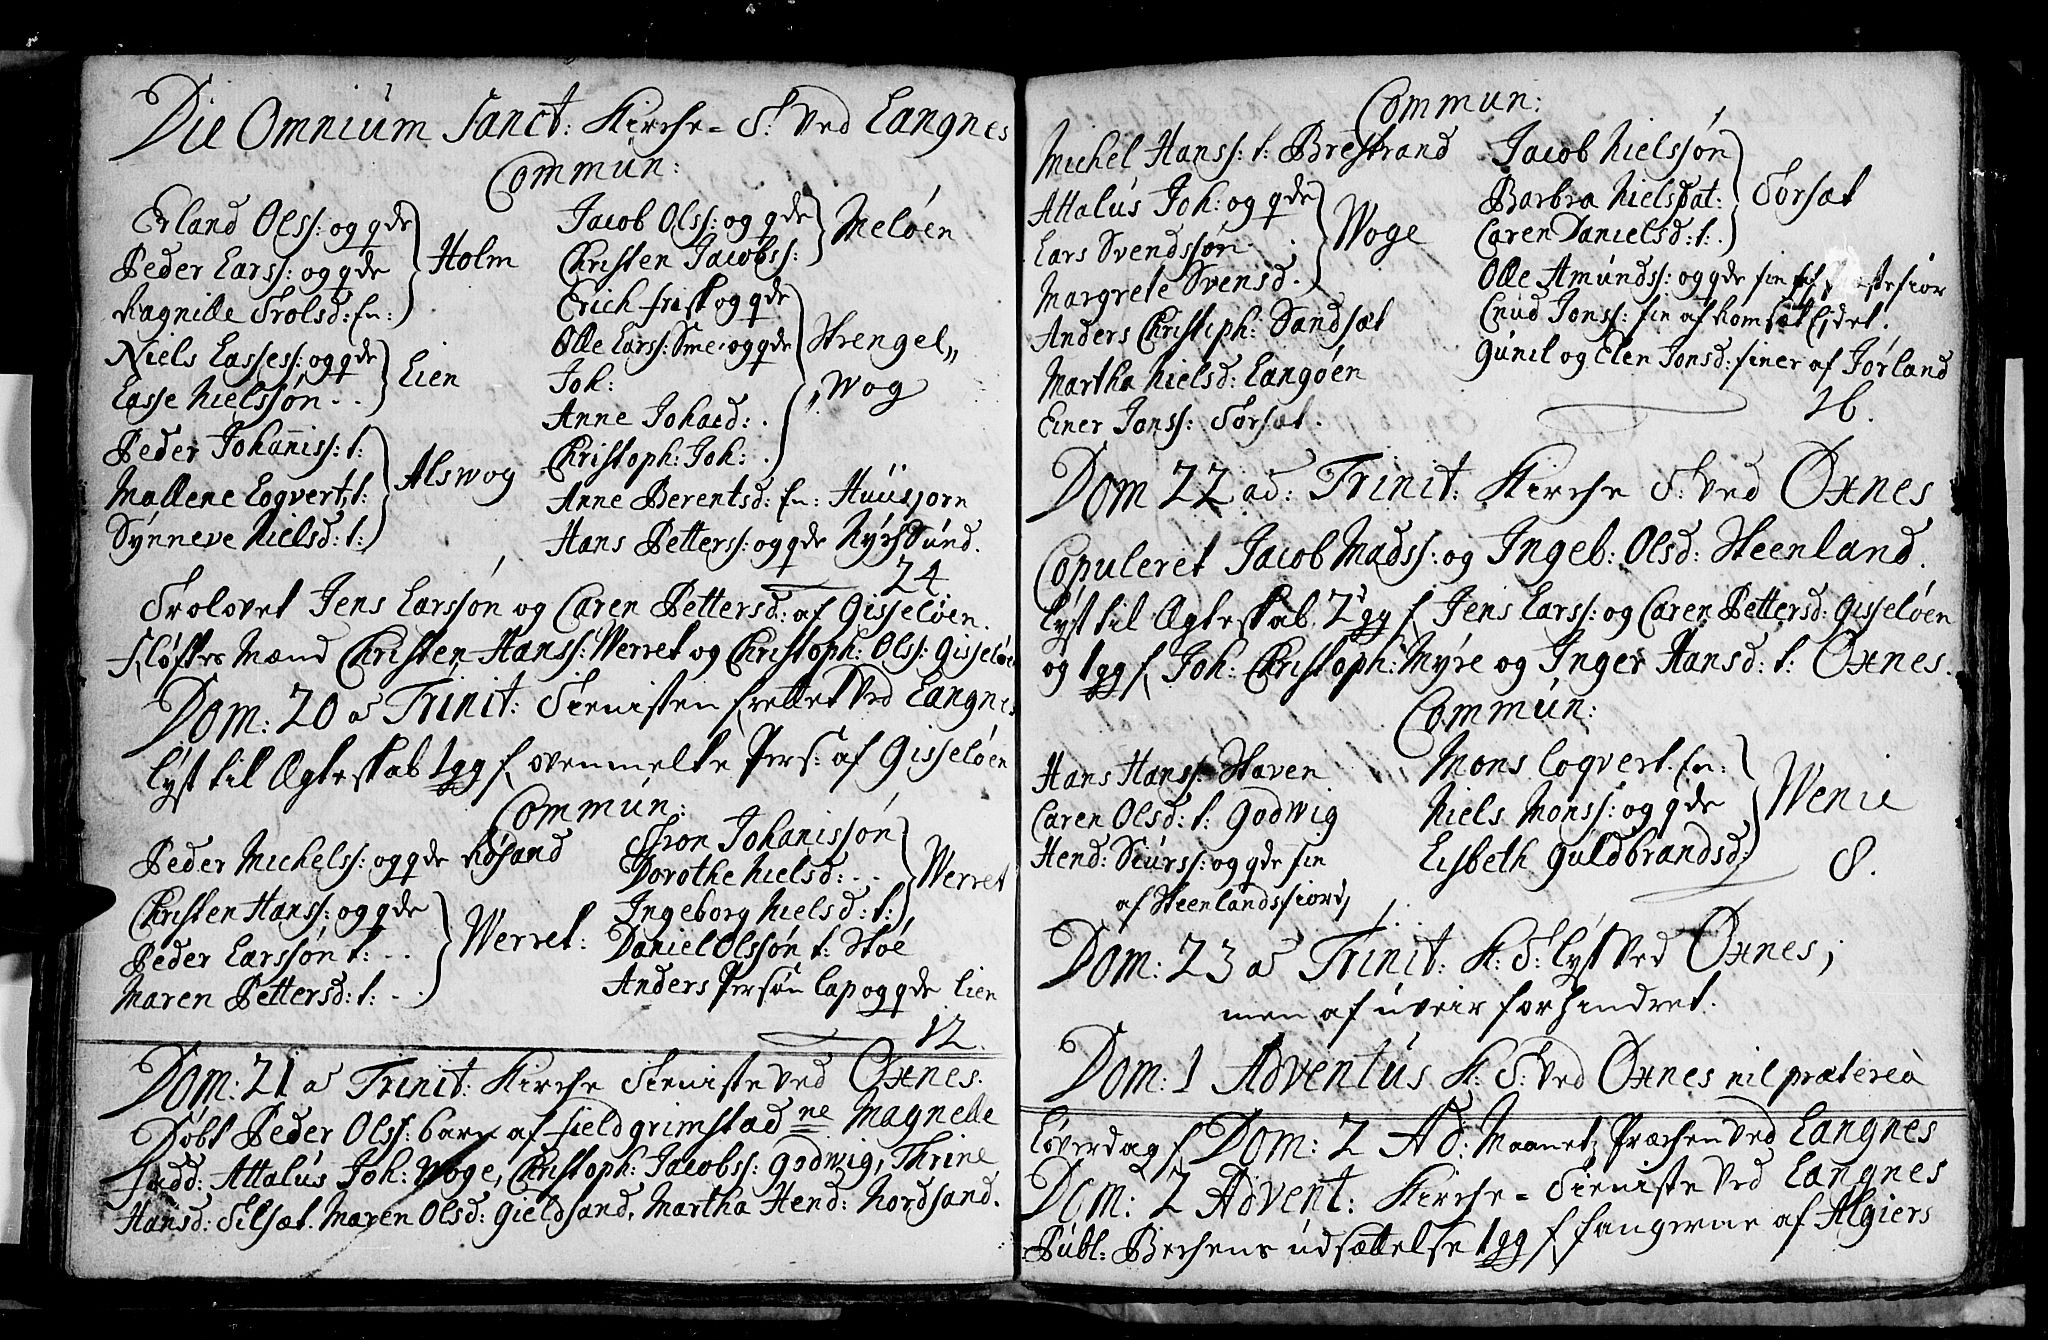 Die Omnium Sanct: Kirche- S: ved Langnes
Commun:
Erland Olss: og qde
Peder Larss: og qde
Ragnille Trolsd: En:
Holm
Niels Lasses: og qde
Lasse Nielssøn
Eien
Peder Johaniss: t:
Mallene Logvert: t:
Synneve Nielsd: t:
Alswog
Jacob Olss: og qde
Christen Jacobss:
Meløen
Erich frisk og qde
Olle Larss: Sme: og qde
Joh:
Anne Johaed:
Christoph: Joh:
Strengel„
„Wog
Anne Berentsd: En: Huusjorn
Hans Petterss: og qde Nyrsund.
24
Trolovet Jens Larssøn og Caren Pettersd: af Gisseløen.
Fløftes Mænd Christen Hanss: Werret og Christoph: Olss: Gisseløe
Dom: 20 a Trinit: Tienisten frettet ved Langnes
lyst til Ægteskab 1 gg f ovenmelte Pers: af Gisseløen
Commun:
Peder Michelss: og qde Røsand
Christen Hanss: og qde
Peder Larssøn t:
Maren Pettersd: t:
Werret:
Thron Johanissøn
Dorothe Nielsd:
Ingeborg Nielsd: t:
Werret
Daniel Olssøn t: Støe
Anders Persøn lap og qde Lien
12.
Dom: 21 a Trinit: Kirche Tieniste ved Oxnes.
Døbt Peder Olss: barn af fieldgrimstad ne Magnelle
fadd: Attalus Joh: Woge, Christoph: Jacobss: Godwig, Thrine
Hansd: Tilsæt. Maren Olsd: Gieldsand, Martha Hend: Nordsand.
Commun:
Michel Hanss: t: Brestrand
Attalus Joh: og qde
Lars Svendssøn
Margrete Svensd.
Woge
Anders Christiph: Sandsæt
Martha Nielsd: Langøen
Einer Jonss: Torsæt.
Jacob Nielssøn
Barbra Nielsdat:
Caren Danielsd: t:
Torsæt
Olle Amundss: og qde fin af
Cnud Jonss: fin af Romsæt Eidet.
Gunil og Elen Jonsd: finer af Jørland
16.
Dom 22 ad: Trinit: Kirche S: ved Oxnes
Copuleret Jacob Madss: og Ingeb: Olsd: Steenland.
lyst til Ægteskab 2 gg f Jens Larss: og Caren Pettersd: Gisseløen
og 1 gg f Joh: Christoph: Myre og Inger Hansd: t: Oxnes.
Commun:
Hans Hanss: Staven
Caren Olsd: t: Godwig
Hend: Siurss: og qde fin
af Steenlandsfiord,
Mons Logvert. En:
Niels Monss: og qde
Lisbeth Guldbrandsd:
Wenie
8.
Dom: 23 a Trinit: K: S: lyst ved Oxnes;
men af uveir forhindret.
Dom: 1 Adventus K: S: ved Oxnes nil præterea
Løverdag f Dom: 2 Ad: Maanetz Præchen ved Langnes
Dom: 2 Advent: Kirche- Tieniste ved Langnes
Publ: Bechens udsættelse 1 gg f fangerne af Algiers